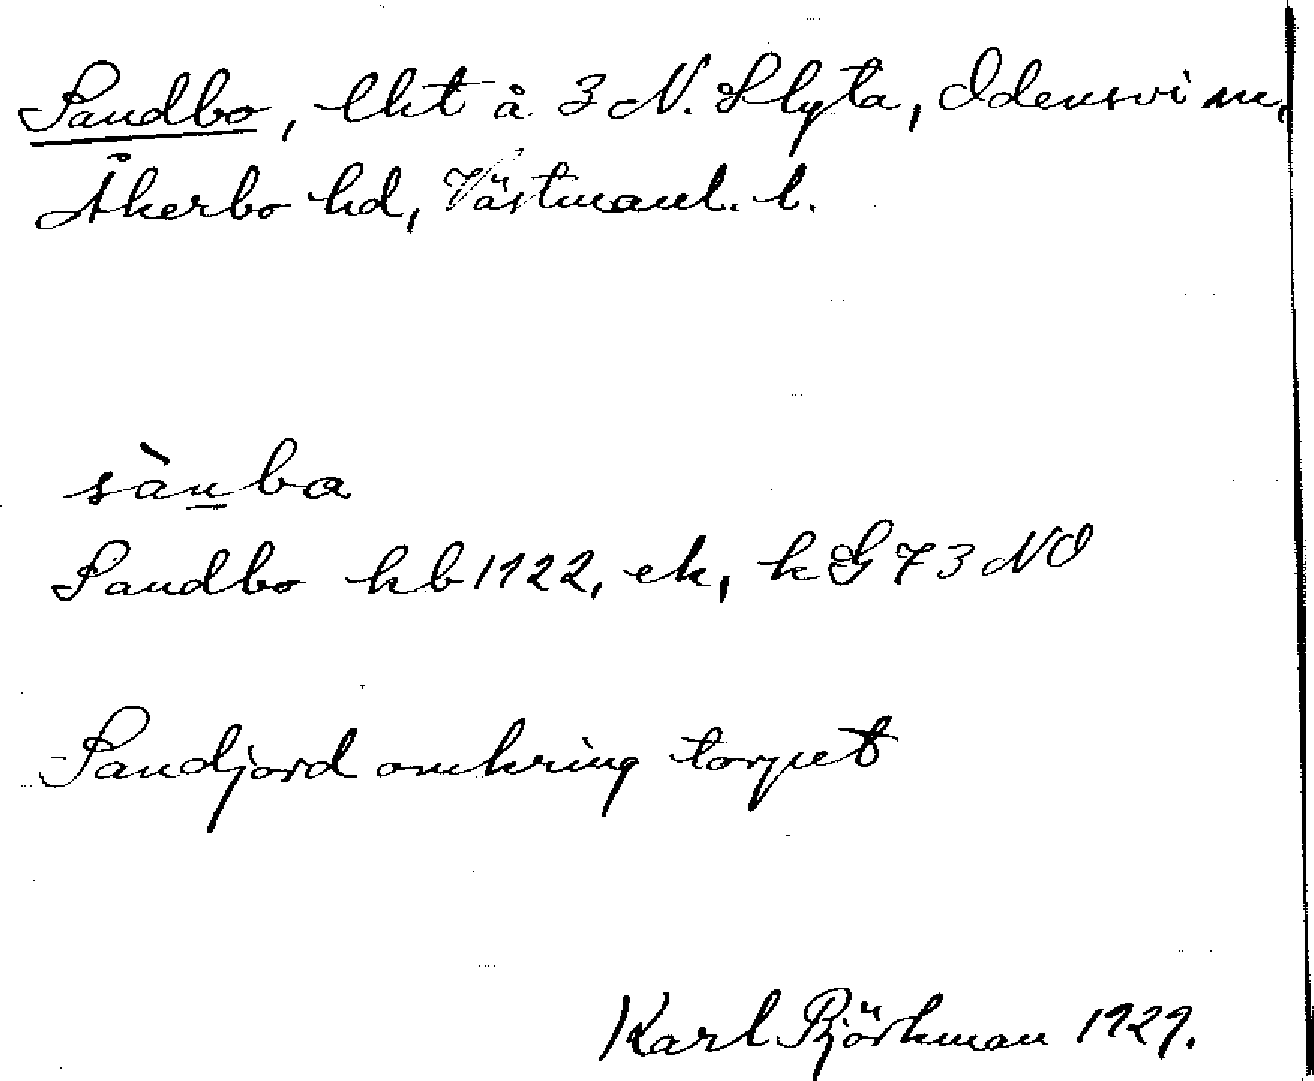 Sandbo, lht å 3 N. Skyta, Odensvi sn,
Åkerbo hd, Västmanl. l.
sànba
Sandbo hb 1122, ek, k G 73 NO
Sandjord omkring torpet
Karl Björkman 1929.